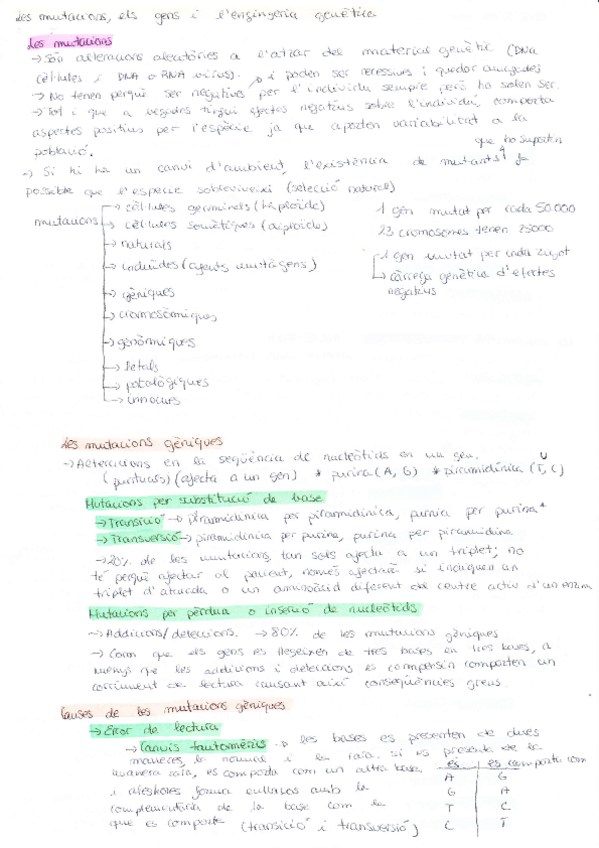 Les mutacions, els gens i l'enginyeria genètica
Les mutacions
→ Són alteracions aleatòries a l'atzar del material genètic (DNA
cèl·lules i DNA o RNA virus). i poden ser recessius i quedar amagades
→ No tenen perquè ser negatives per l'individu sempre però ho solen ser.
→ Tot i que a vegades tingui efectes negatius sobre l'individu, comporta
aspectes positius per l'espècie ja que aporten variabilitat a la
població.
→ Si hi ha un canvi d'ambient, l'existència de mutants que ho suporten fa
possible que l'espècie sobrevisqui (selecció natural)
mutacions
→ cèl·lules germinals (haploide)
→ cèl·lules somàtiques (diploide)
→ naturals
→ induïdes (agents mutàgens)
→ gèniques
→ cromosòmiques
→ genòmiques
→ letals
→ patològiques
→ innocues
1 gen mutat per cada 50.000
23 cromosomes tenen 25000
1 gen mutat per cada zigot
→ càrrega genètica d'efectes
negatius
Les mutacions gèniques
→ Alteracions en la seqüència de nucleòtids en un gen.
(puntuals) (afecta a un gen) * purina (A, G) * piramidínica (T, C)
U
Mutacions per substitució de base
→ Transició → piramidínica per piramidínica, purina per purina*
→ Transversió → piramidínica per purina, purina per piramidina
→ 20% de les mutacions, tan sols afecta a un triplet; no
té perquè afectar al pacient, només afectarà si indiquen un
triplet d'aturada o un aminoàcid diferent del centre actiu d'un enzim
Mutacions per pèrdua o inserció de nucleòtids
→ Addicions/deleccions. → 80% de les mutacions gèniques
→ Com que els gens es llegeixen de tres bases en tres bases, a
menys que les addicions i deleccions es compensin comporten un
corriment de lectura causant així conseqüències greus.
Causes de les mutacions gèniques
→ Error de lectura
→ Canvis tautomèrics → les bases es presenten de dues
maneres, la normal i la rara. si es presenta de la
manera rara, es comporta com un altra base,
i aleshores forma enllaços amb la
complementària de la base com la
que es comporta (transició i transversió)
és es comporta com
A G
G A
T C
C T